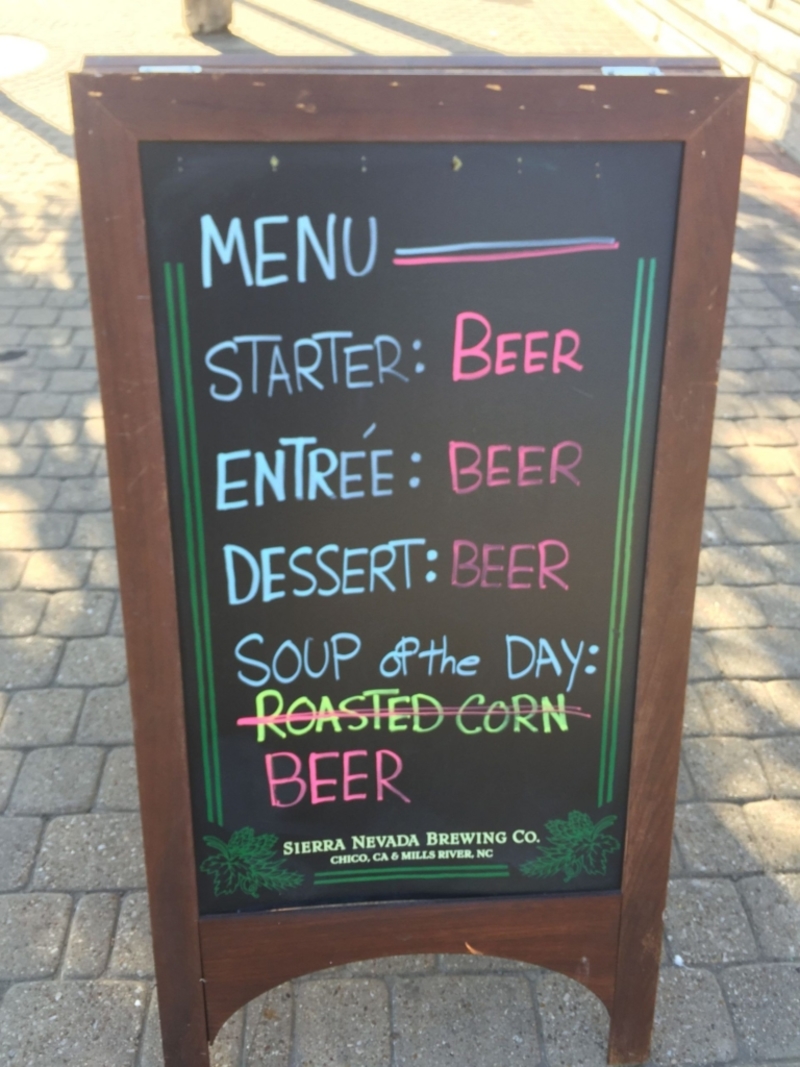 MENU
STARTER: BEER
ENTREÉ: BEER
DESSERT: BEER
SOUP of the DAY:
ROASTED CORN
BEER
SIERRA NEVADA BREWING CO.
CHICO, CA & MILLS RIVER, NC